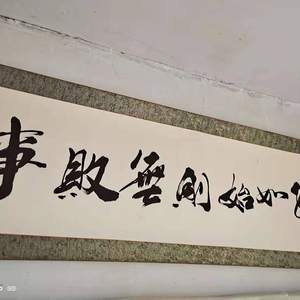 如始則無敗事